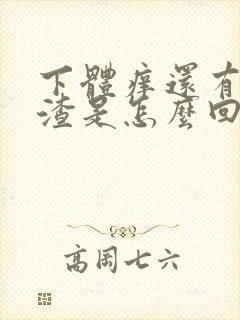 下體痒還有
渣是怎麼回
高周七六